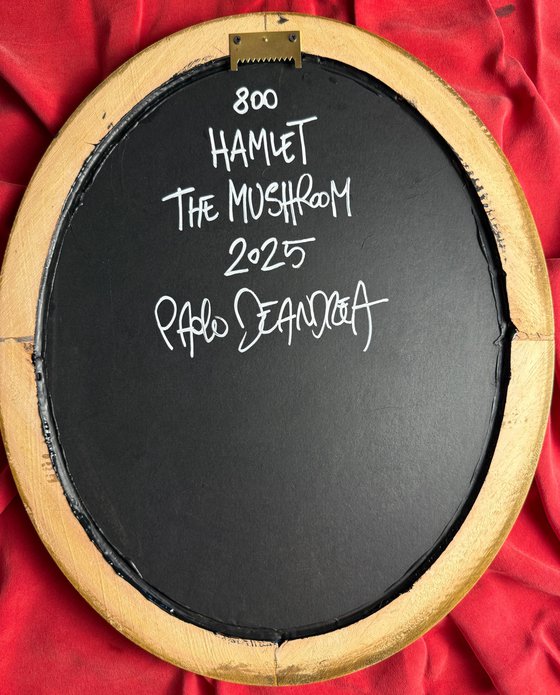 800
HAMLET
THE MUSHROOM
2025
PAOLO DEANDREA